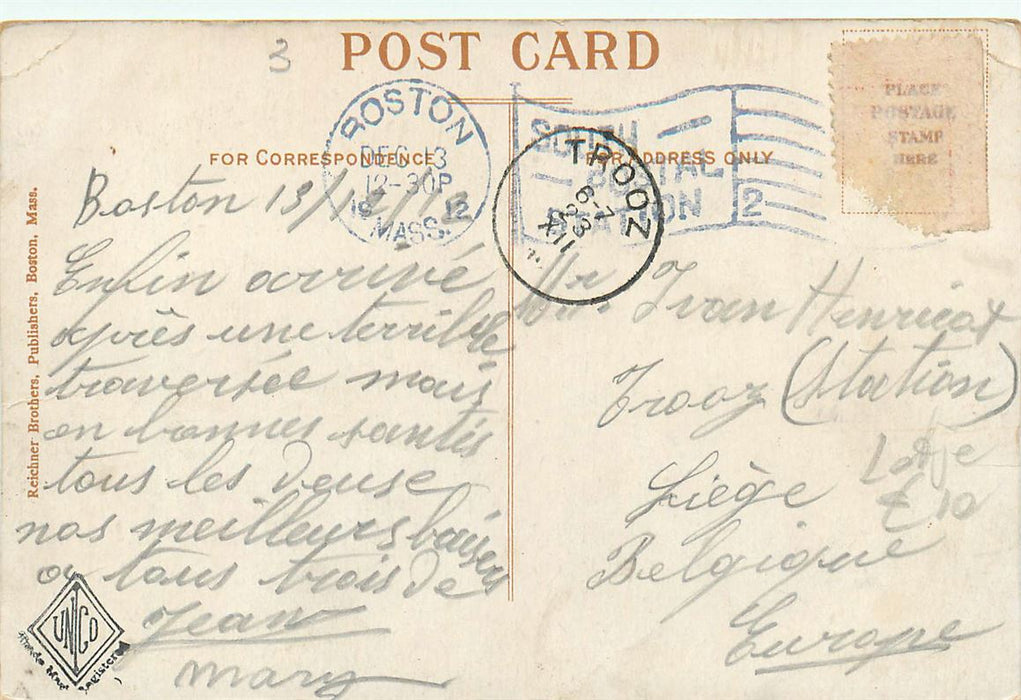 3
POST CARD
FOR CORRESPONDENCE
FOR ADDRESS ONLY
PLACE
POSTAGE
STAMP
HERE
BOSTON
DEC 13
12-30P
MASS.
SOUTH
POSTAL
STATION
2
TROOZ
6-7
23
XII
Reichner Brothers, Publishers, Boston, Mass.
Boston 13/12/12
Enfin arrivé
après une terrible
traversée mais
en bonnes santés
tous les deuse
nos meilleurs baisers
a tous trois de
Jean
Mary
Mr. Ivan Henricot
Trooz (Station)
Liège
Belgique
Europe
UNCO
Trade Mark Registered